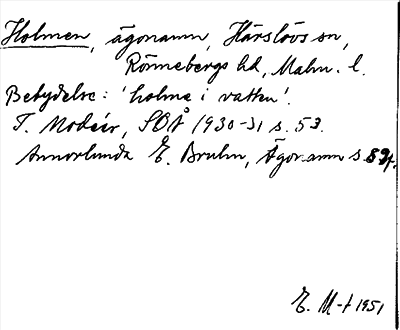 Holmen, ägonamn, Härslövs sn,
Rönnebergs hd, Malm. l.
Betydelse: 'holme i vatten'.
I. Modéer, SOÅ 1930-31 s. 53.
Annorlunda E. Bruhn, Ägonamn s. 89f.
E. M-t 1951